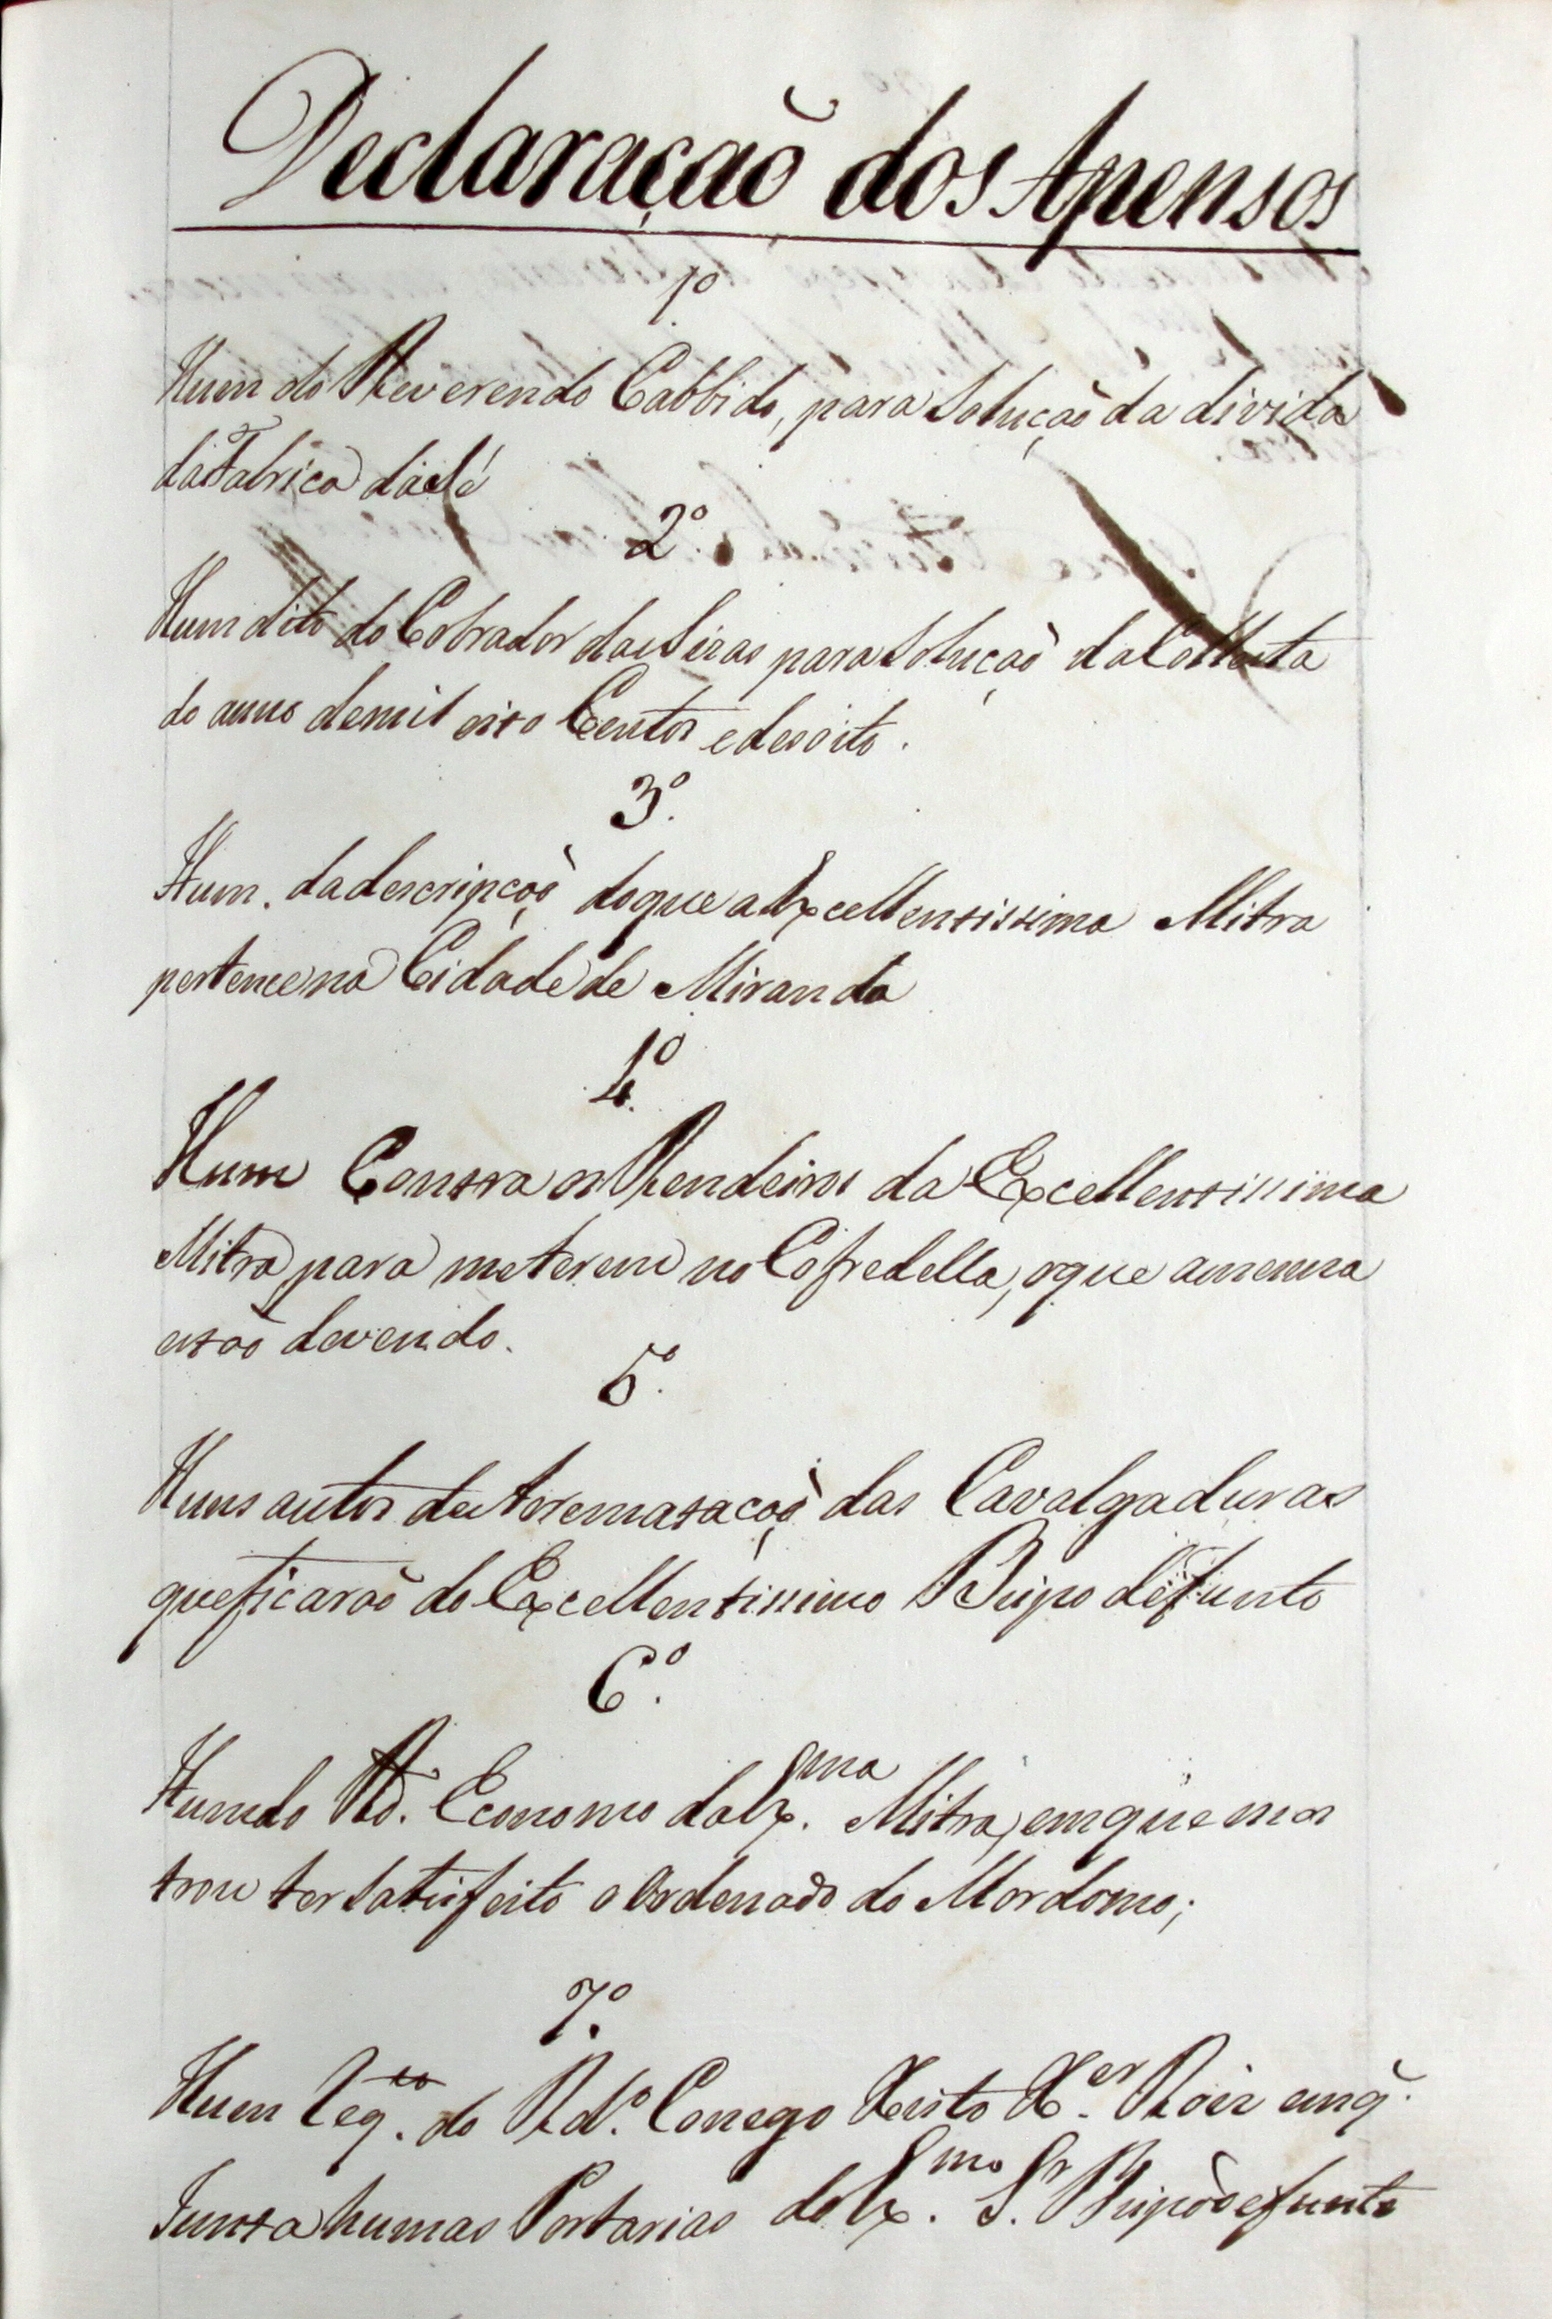 Declaração dos Apensos
1º
Hum do Reverendo Cabbido, para Solução da divida
da Fabrica da Sé
2º.
Hum dito do Cobrador das Sizas para Solução da Collecta
do anno de mil oito Centos e desoito.
3º.
Hum. da descripção do que a Excellentissima Mitra
pertence na Cidade de Miranda
4º.
Hum Contra os Rendeiros da Excellentissima
Mitra para meterem no Cofre della, o que a mesma
estão devendo.
5º.
Huns autos de Arematação das Cavalgaduras
que ficarão do Excellentissimo Bispo defunto
6º.
Hum do Rdo. Economo da Ex.ma Mitra, em que mos
trou ter Satisfeito o Ordenado do Mordomo;
7º.
Hum Req.to do Rdo. Conego Xisto X.er Roiz em q̃.
Junta humas Portarias do Ex.mo S.r Bispo defunto